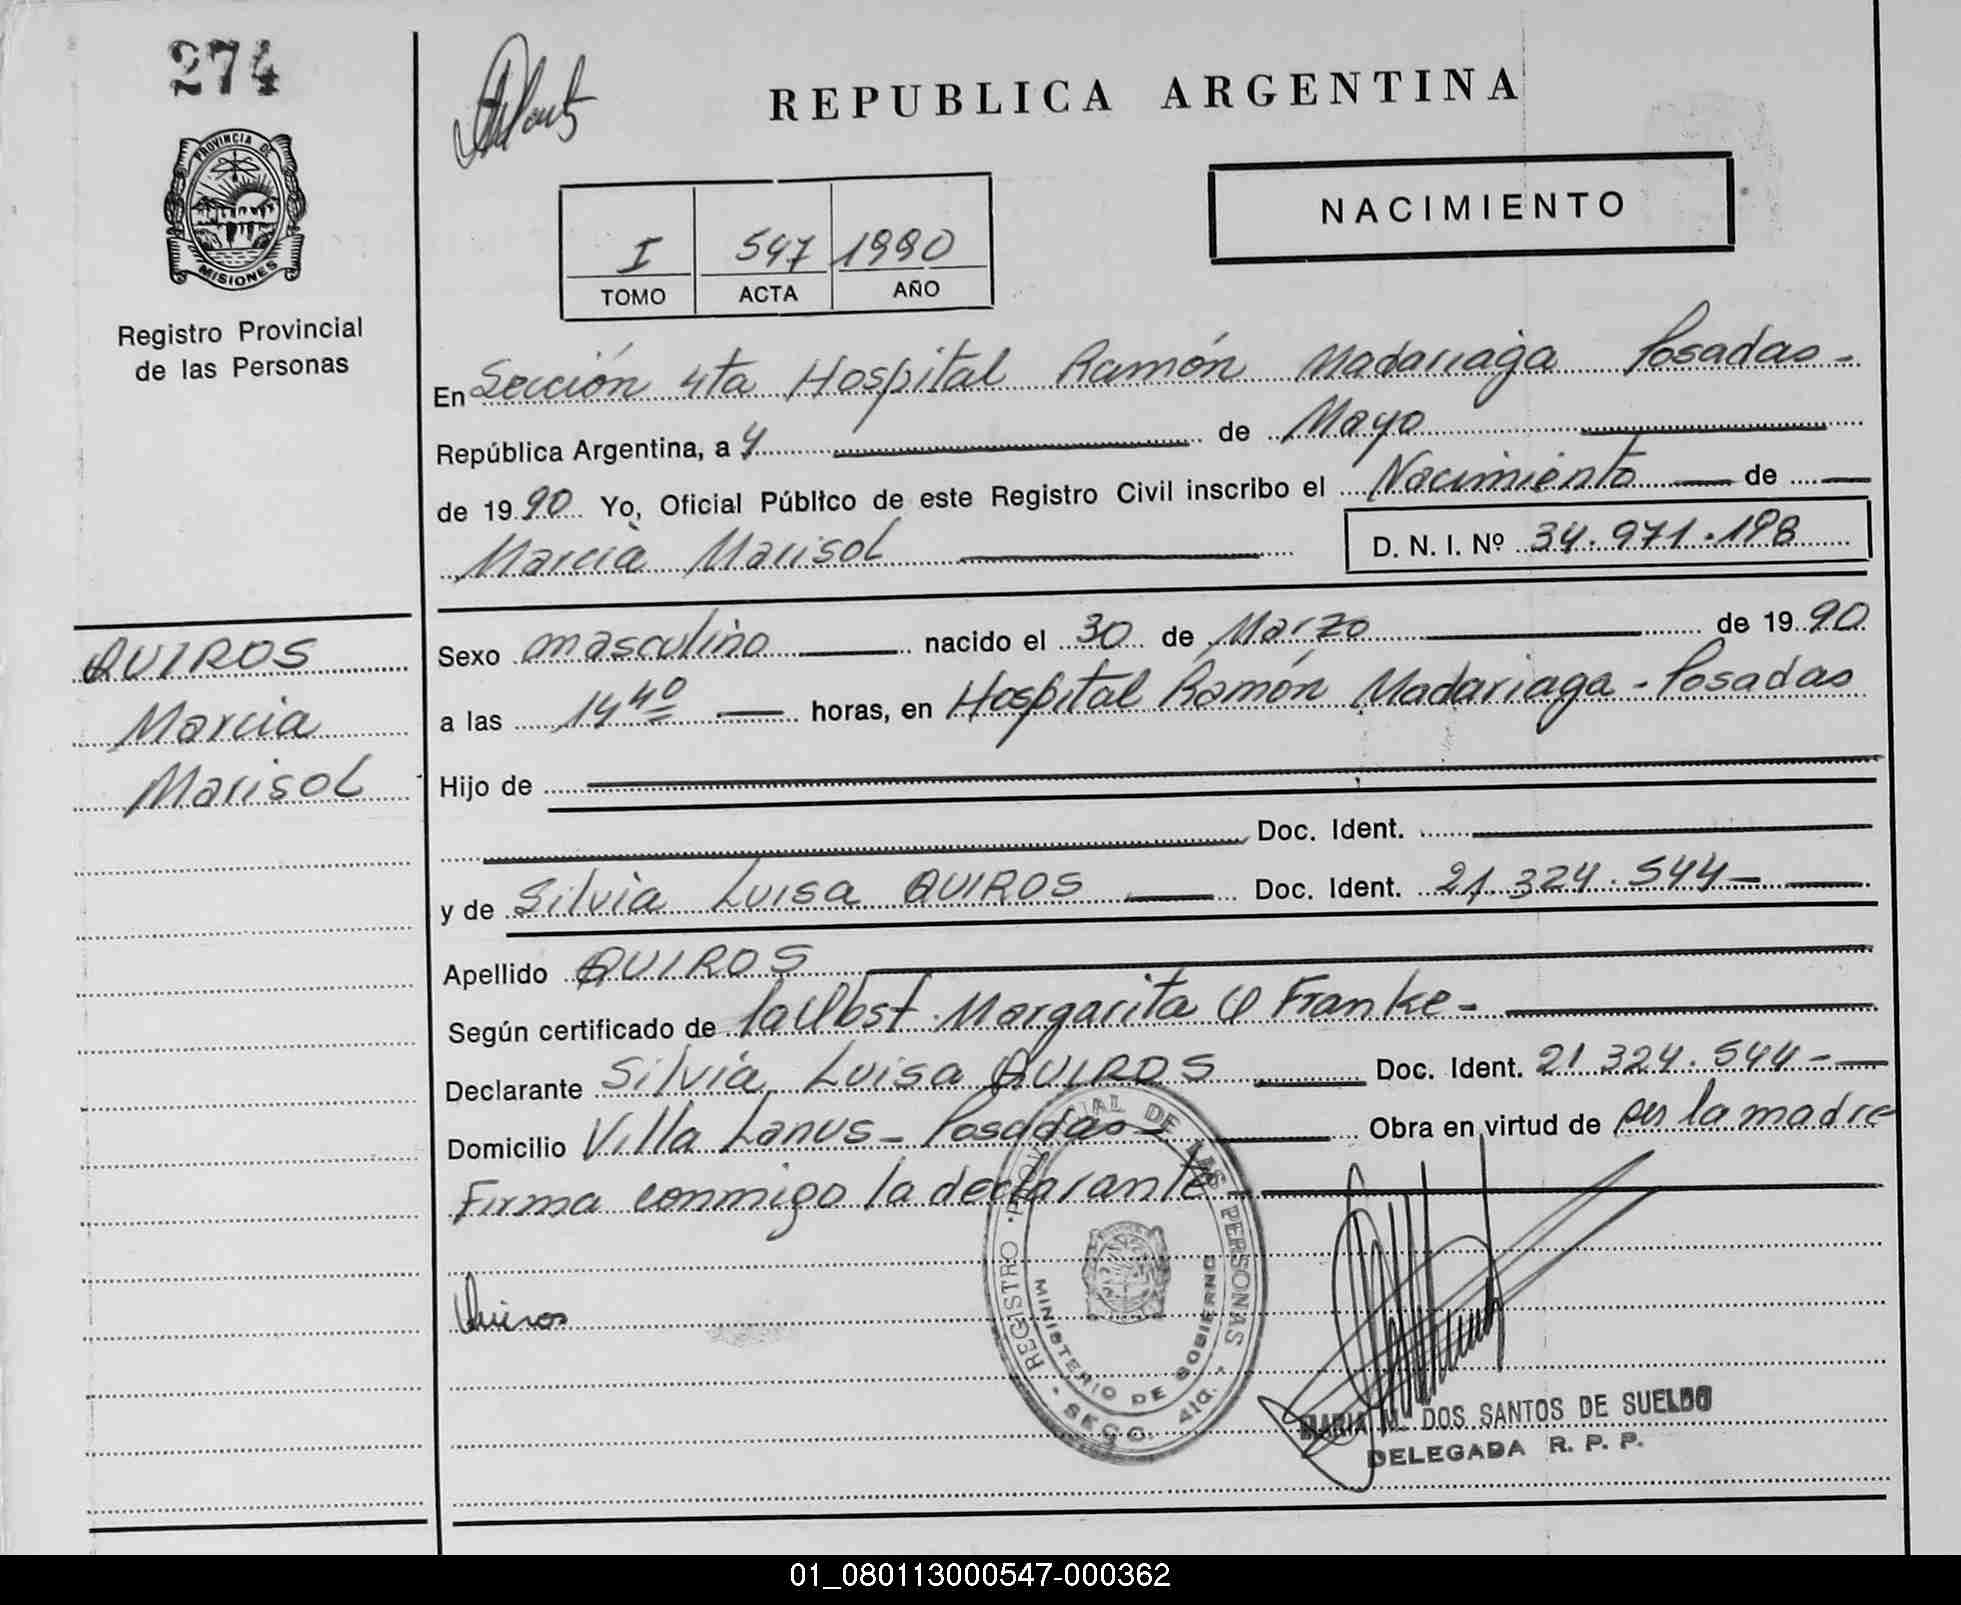 274
PROVINCIA DE
MISIONES
Registro Provincial
de las Personas
QUIROS
Marcia
Marisol
REPUBLICA ARGENTINA
NACIMIENTO
I 547 1990
TOMO ACTA AÑO
En Sección 4ta Hospital Ramón Madariaga Posadas-
República Argentina, a 4 de Mayo
de 1990 Yo, Oficial Público de este Registro Civil inscribo el Nacimiento de
Marcia Marisol D. N. I. Nº 34.971.198
Sexo masculino nacido el 30 de Marzo de 1990
a las 14 40 horas, en Hospital Ramón Madariaga - Posadas
Hijo de
Doc. Ident.
y de Silvia Luisa QUIROS Doc. Ident. 21.324.544-
Apellido QUIROS
Según certificado de la Obst. Margarita Franke-
Declarante Silvia Luisa QUIROS Doc. Ident. 21.324.544-
Domicilio Villa Lanus - Posadas- Obra en virtud de ser la madre
Firma conmigo la declarante-
Quiros
REGISTRO PROVINCIAL DE LAS PERSONAS
MINISTERIO DE GOBIERNO
SECC. 4ta.
MARIA M. DOS SANTOS DE SUELDO
DELEGADA R. P. P.
01_080113000547-000362